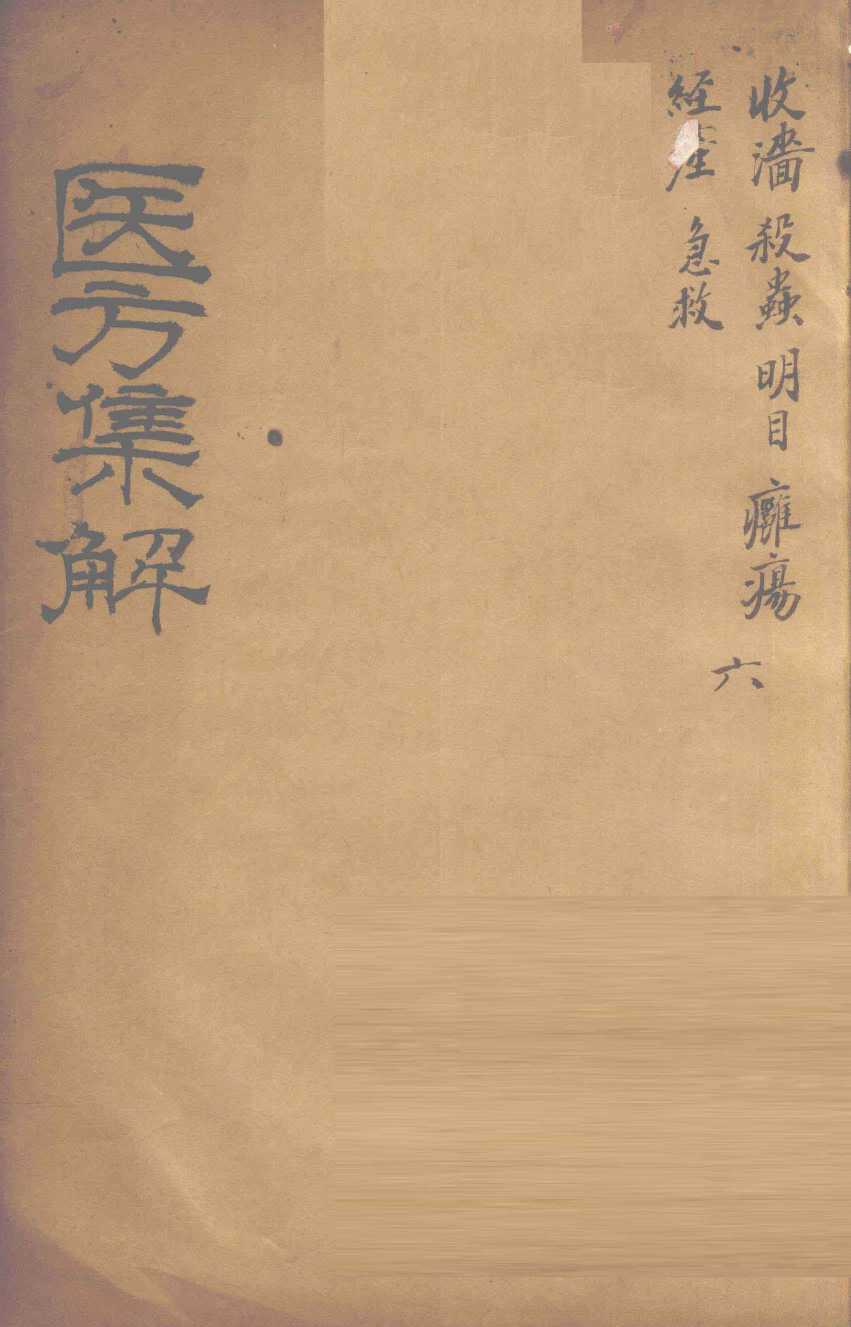 收濇 殺蟲 明目 癰瘍
経産 急救
六
医方集解